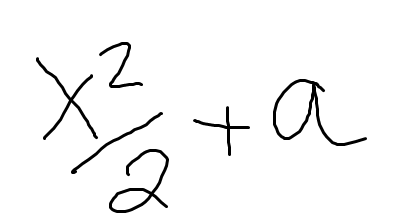 x²/2 + a